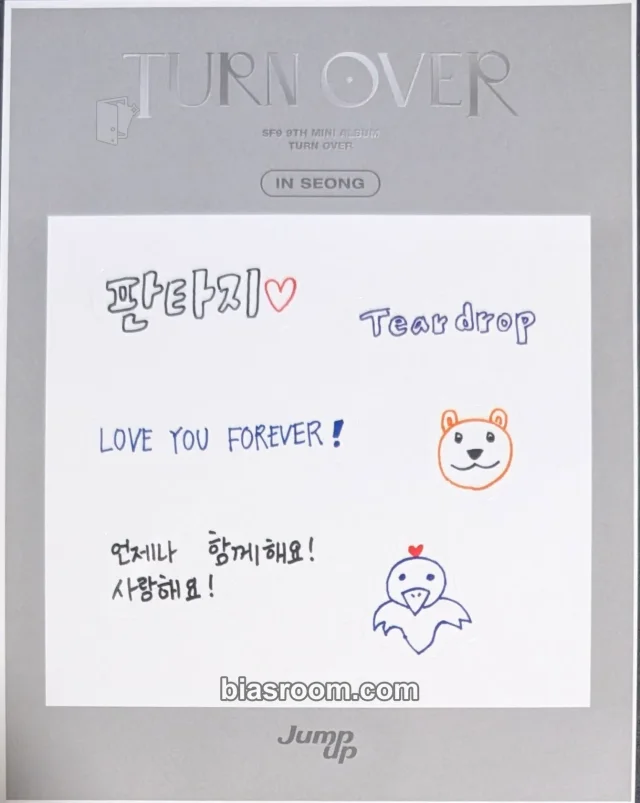 TURN OVER
SF9 9TH MINI ALBUM
TURN OVER
IN SEONG
판타지♡
Teardrop
LOVE YOU FOREVER!
언제나 함께해요!
사랑해요!
biasroom.com
Jump up